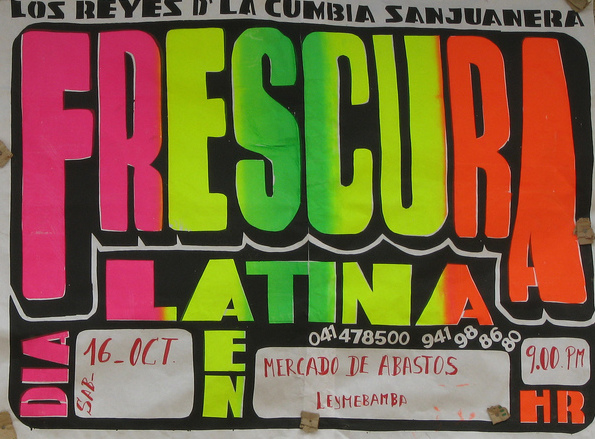 LOS REYES D' LA CUMBIA SANJUANERA
FRESCURA
LATINA
041478500 941988680
DIA
16_OCT.
SAB-
EN
MERCADO DE ABASTOS
LEYMEBAMBA
9.00. PM
HR